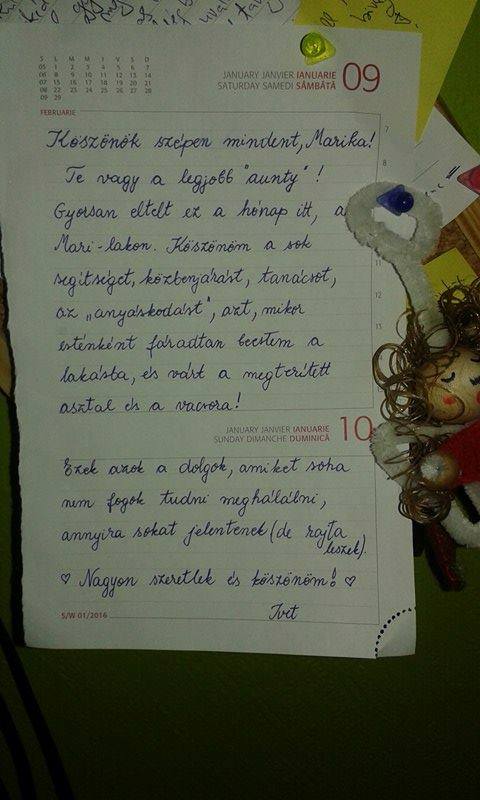 S L M M J V S D
05 1 2 3 4 5 6 7
06 8 9 10 11 12 13 14
07 15 16 17 18 19 20 21
08 22 23 24 25 26 27 28
09 29
JANUARY JANVIER IANUARIE 09
SATURDAY SAMEDI SÂMBĂTĂ
FEBRUARIE
7
Köszönök szépen mindent, Marika!
8
Te vagy a legjobb "aunty"!
Gyorsan eltelt ez a hónap itt, a
Mari-lakon. Köszönöm a sok
11
segítséget, közbenjárást, tanácsot,
12
az „anyáskodást", azt, mikor
13
esténként fáradtan beestem a
lakásba, és várt a megterített
asztal és a vacsora!
JANUARY JANVIER IANUARIE 10
SUNDAY DIMANCHE DUMINICĂ
Ezek azok a dolgok, amiket soha
nem fogok tudni meghálálni,
annyira sokat jelentenek (de rajta
leszek).
♡ Nagyon szeretlek és köszönöm! ♡
S/W 01/2016
Ivt